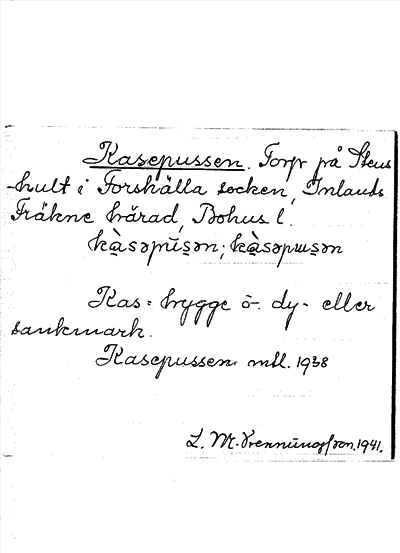 Kasepussen. Torp på Stens
hult i Forshälla socken, Inlands
Fräkne härad, Bohus l.
kàsəpūsən; kàsəpɯsən
Kas = brygge ö. dy- eller
sankmark.
Kasepussen mtl. 1938
L. M. 1941.